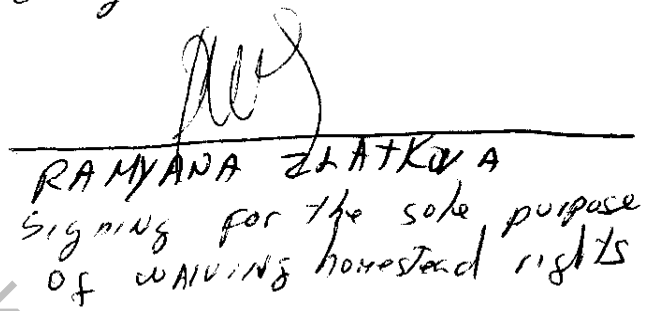 RAMYANA ZLATKOVA
Signing for the sole purpose
of WAIVING homestead rights